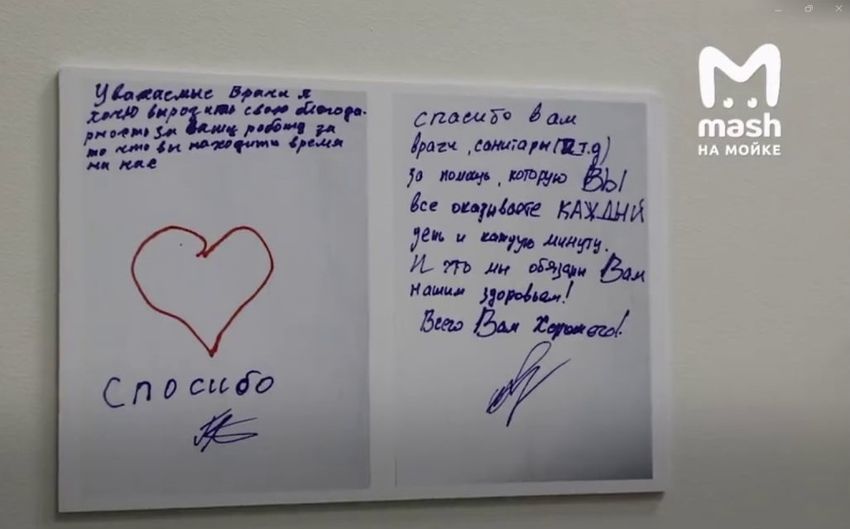 Уважаемые врачи я
хочу выроzить свою благода-
рность за вашу роботу за
то что вы находити время
на нас
Спосибо
спасибо вам
врачи, санитары(и т.д)
за помощь, которую ВЫ
все оказываете КАЖДЫЙ
день и каждую минуту.
И что мы обязаны Вам
нашим здоровьем!
Всего Вам Хорошего!
mash
НА МОЙКЕ